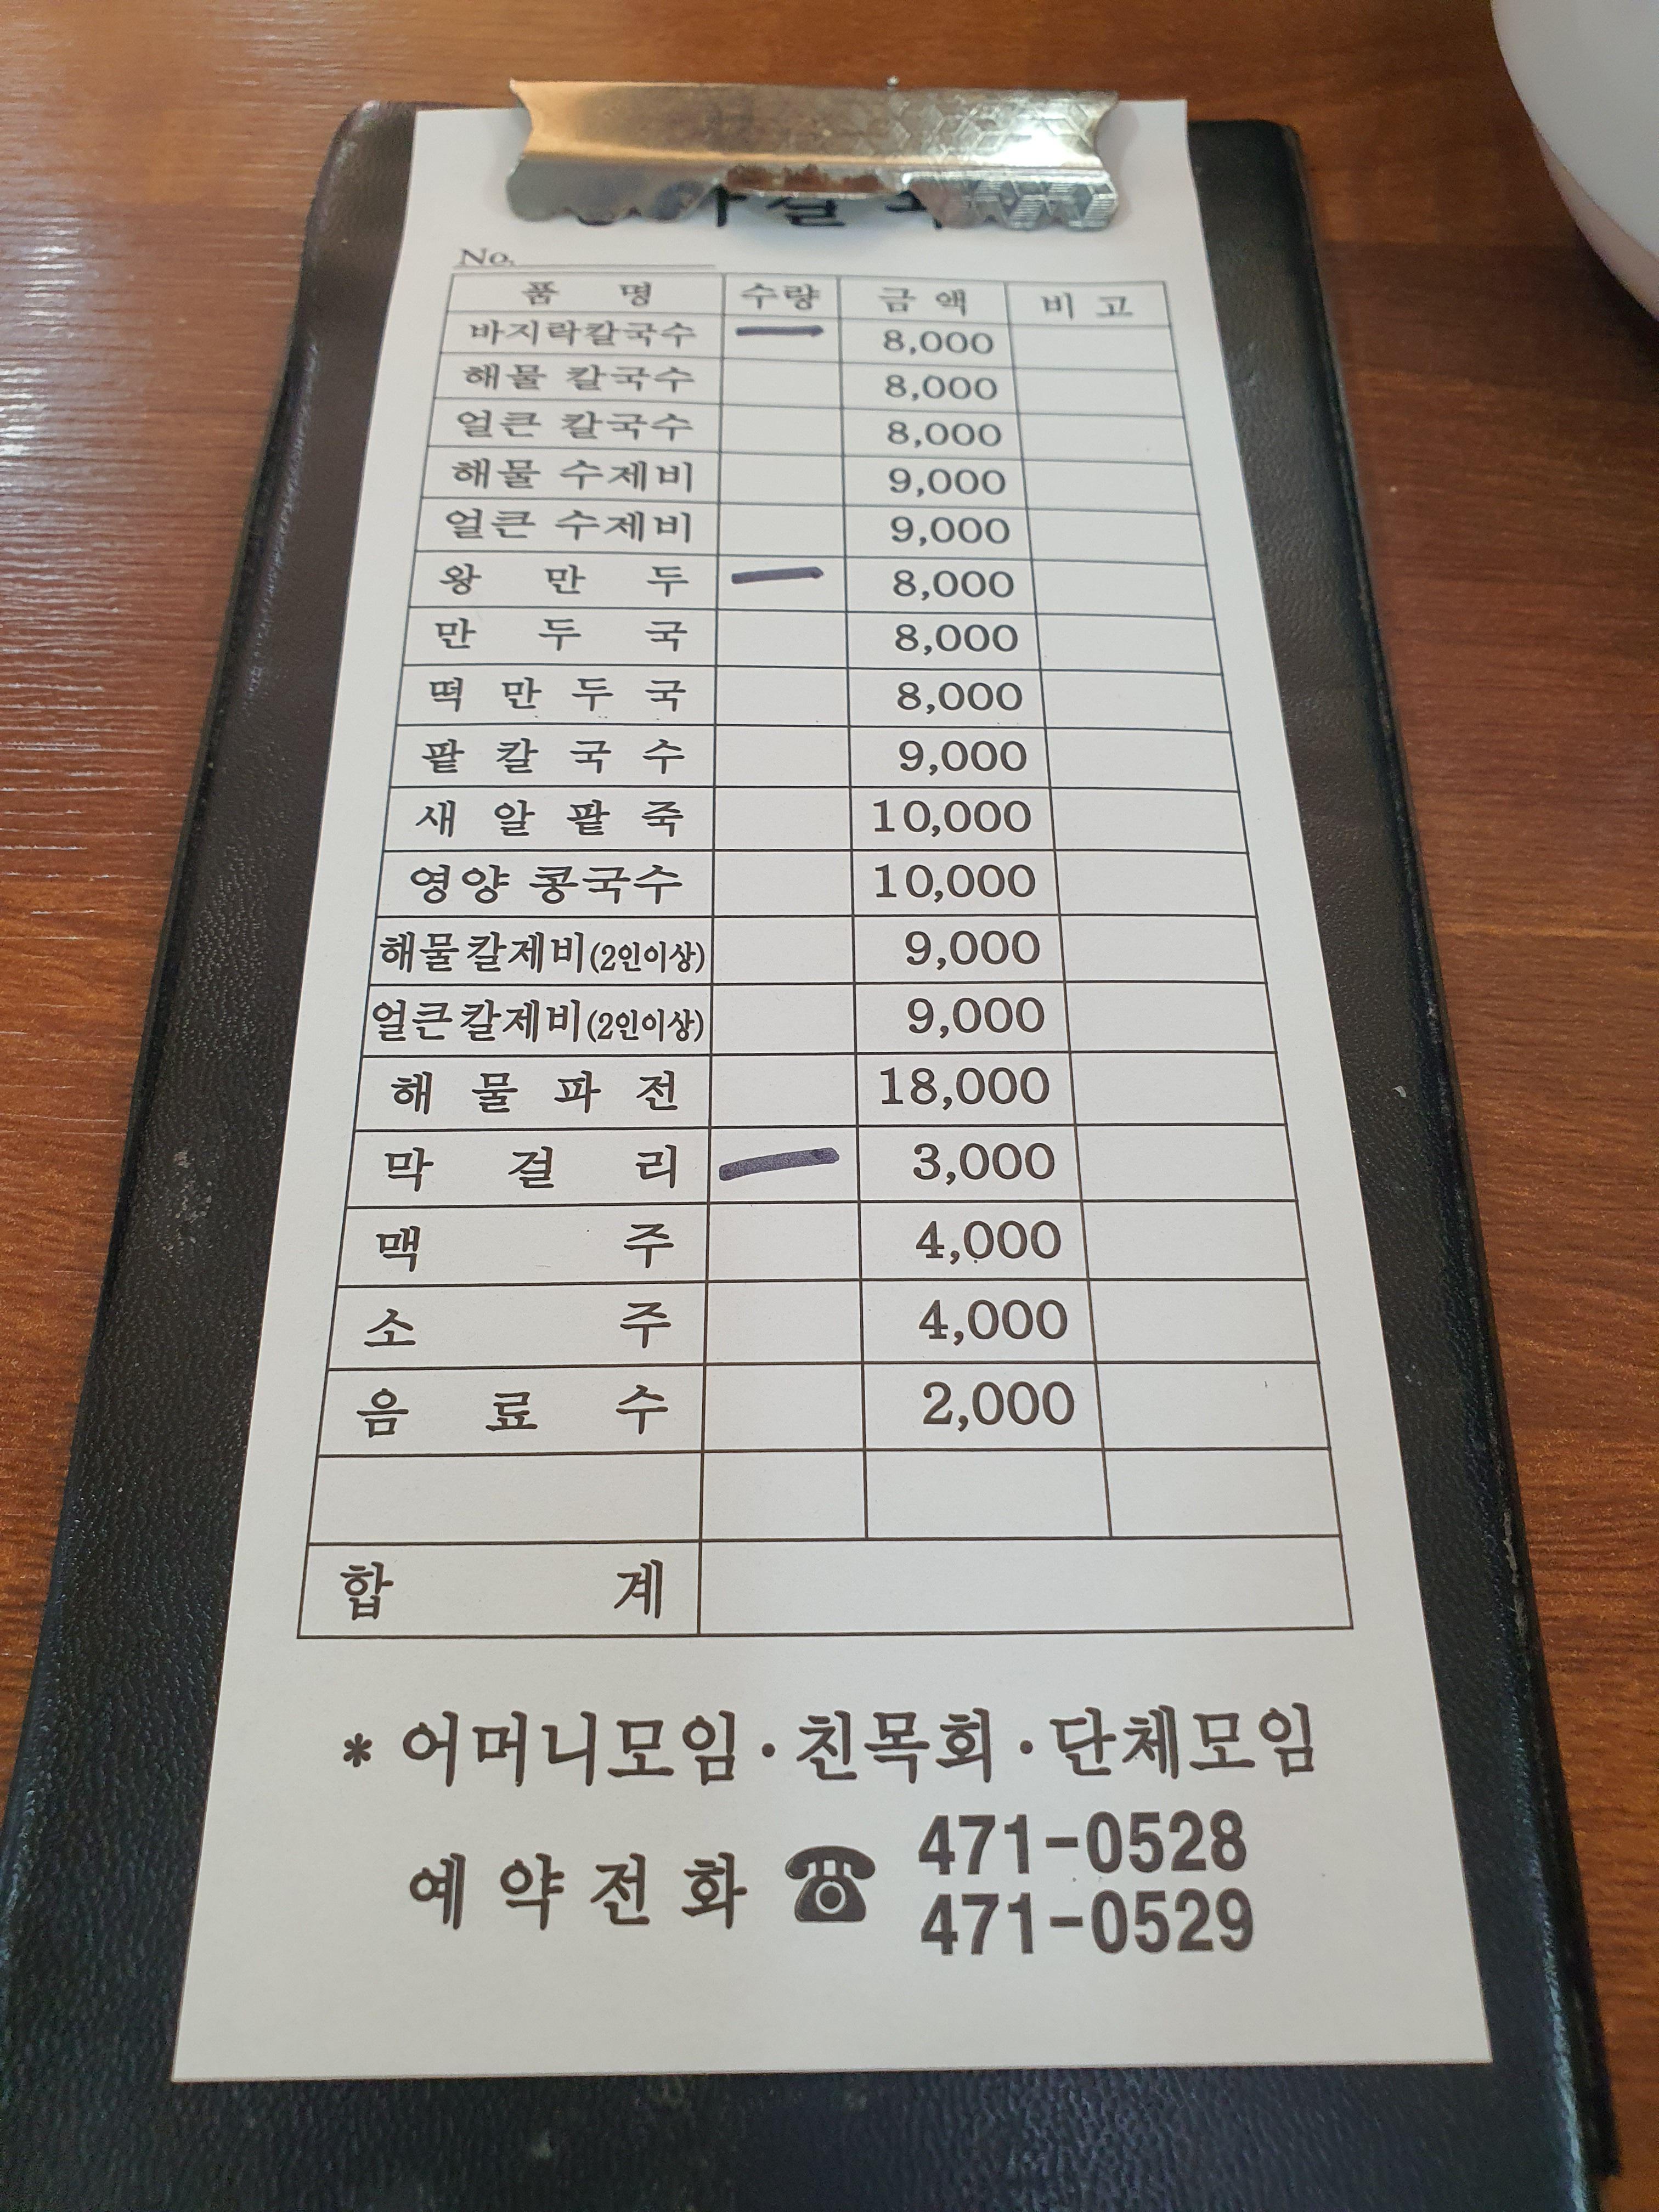 No.
품 명 수량 금 액 비 고
바지락칼국수 8,000
해물 칼국수 8,000
얼큰 칼국수 8,000
해물 수제비 9,000
얼큰 수제비 9,000
왕 만 두 8,000
만 두 국 8,000
떡 만 두 국 8,000
팥 칼 국 수 9,000
새 알 팥 죽 10,000
영양 콩국수 10,000
해물칼제비(2인이상) 9,000
얼큰칼제비(2인이상) 9,000
해 물 파 전 18,000
막 걸 리 3,000
맥 주 4,000
소 주 4,000
음 료 수 2,000
합 계
* 어머니모임·친목회·단체모임
예 약 전 화 ☎ 471-0528
471-0529